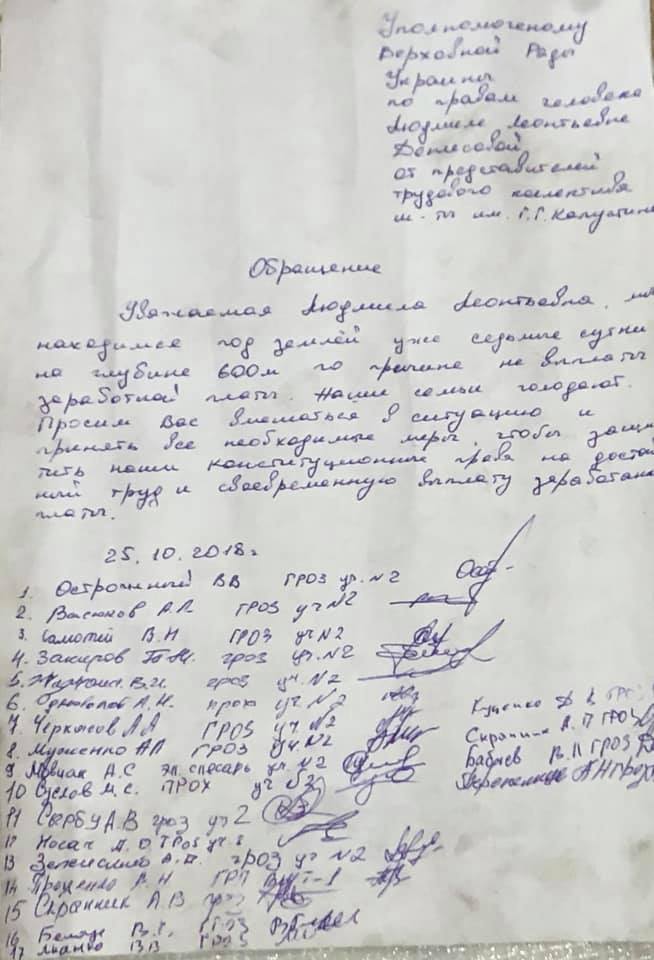 Уполномоченому
Верховной Рады
Украины
по правам человека
Людмиле Леонтьевне
Денисовой
от представителей
трудового коллектива
ш-ты им. Г.Г. Капустина
Обращение
Уважаемая Людмила Леонтьевна, мы
находимся под землёй уже седьмые сутки
на глубине 600м по причине не выплаты
заработной платы. Наши семьи голодают.
Просим Вас вмешаться в ситуацию и
принять все необходимые меры, чтобы защи
тить наши конституционные права на достой
ный труд и своевременную выплату заработной
платы.
25.10.2018г
1. ВВ ГРОЗ уч. N2
2. Васюков А.П. ГРОЗ уч N2
3. Самотий В.Н ГРОЗ уч N2
4. Закиров Т.М. ГРОЗ уч. N2
5. В.И. ГРОЗ уч. N2
6. А.Н. прох уч. N2
7. Черкасов А.А ГРОЗ уч. N2
8. Мушенко АП ГРОЗ уч. N2
9 А.С эл. слесарь уч. N2
10 Суслов М.С. ПРОХ уч N2
11 Сырбу А.В гроз уч 2
12 Носач ГРОЗ уч.
13 А.П. гроз уч N2
14 Проценко А.Н ГРП
15 Скрынник А.В гроз
16 В.Г. ГРОЗ
17 ВВ ГРОЗ
Куценко Д В ГРОЗ
А.П ГРОЗ
Бабаев В.П ГРОЗ
А Н Гроз